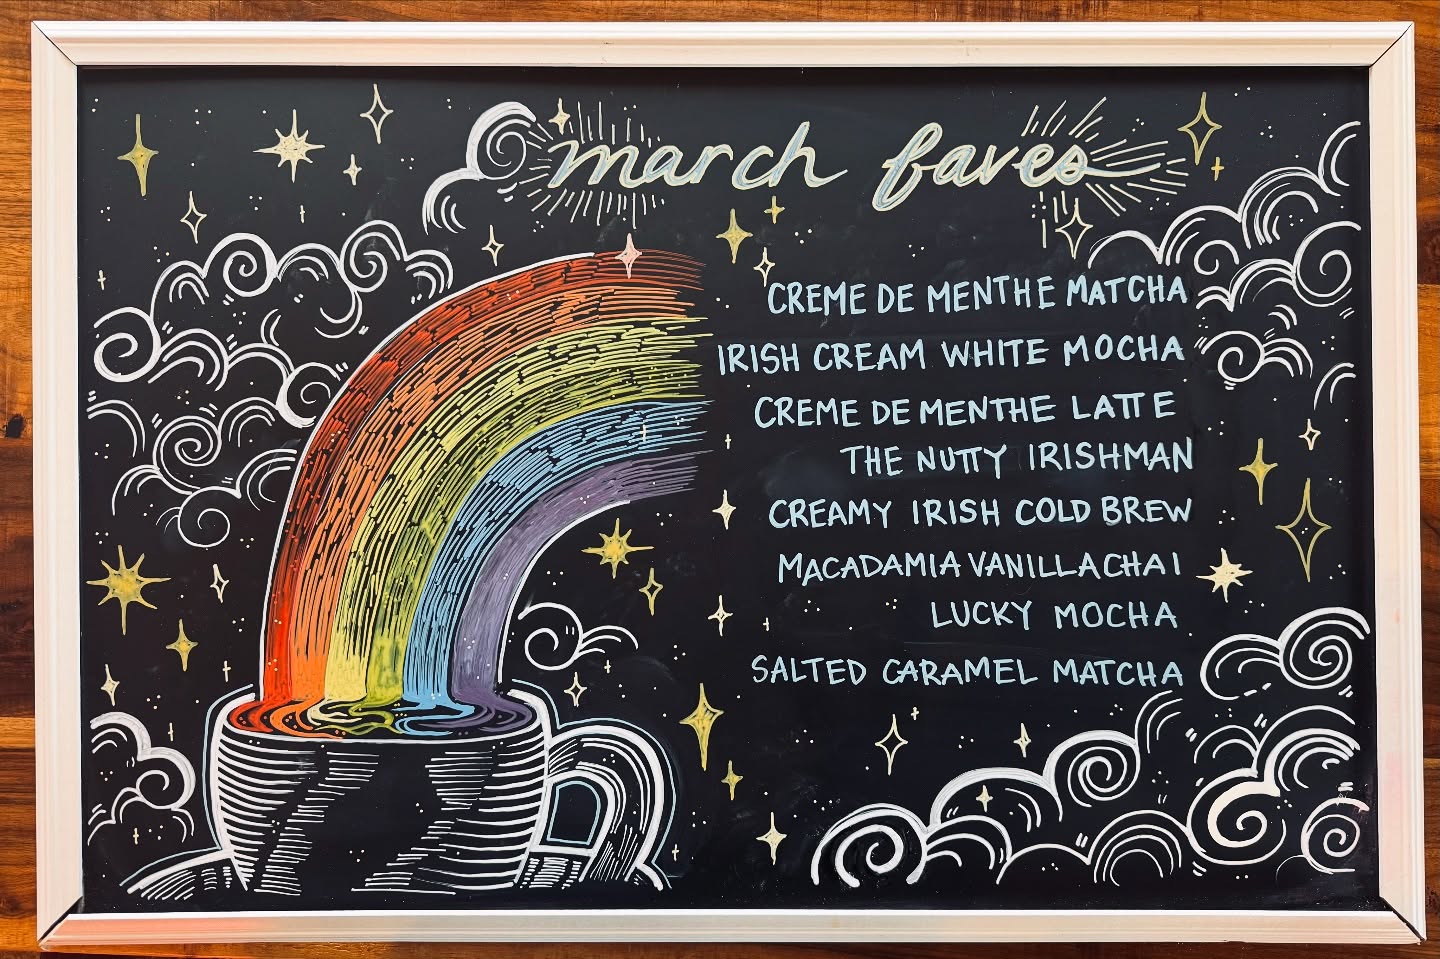 march faves
CREME DE MENTHE MATCHA
IRISH CREAM WHITE MOCHA
CREME DE MENTHE LATTE
THE NUTTY IRISHMAN
CREAMY IRISH COLD BREW
MACADAMIA VANILLA CHAI
LUCKY MOCHA
SALTED CARAMEL MATCHA